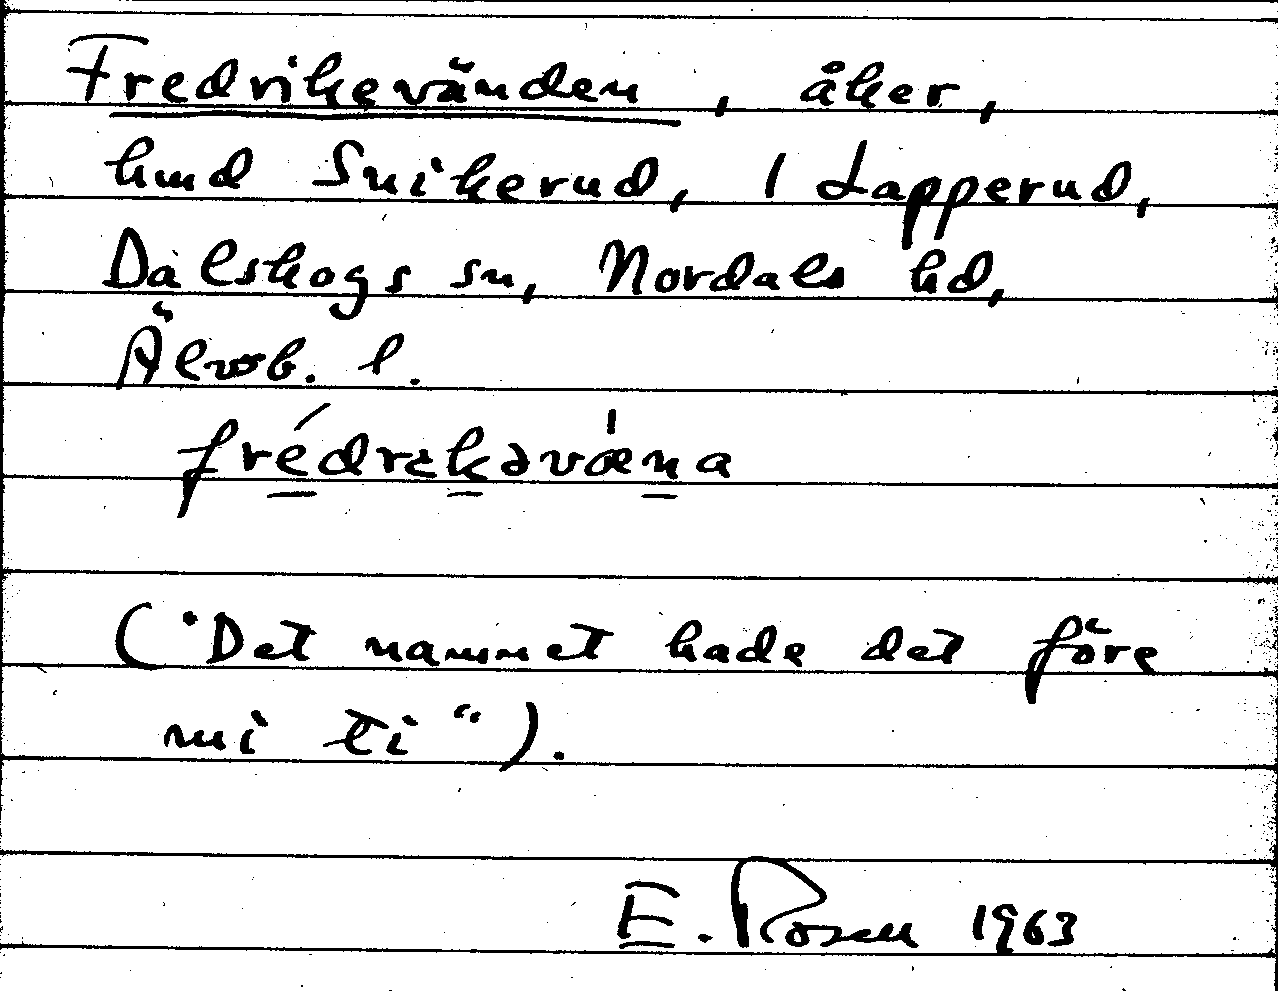 Fredrikevänden, åker,
hmd Snikerud, 1 Lapperud,
Dalskogs sn, Nordals hd,
Älvsb. l.
frédrɩkəvæ̍na
("Det nammet hade det före
mi ti").
E. Rosell 1963